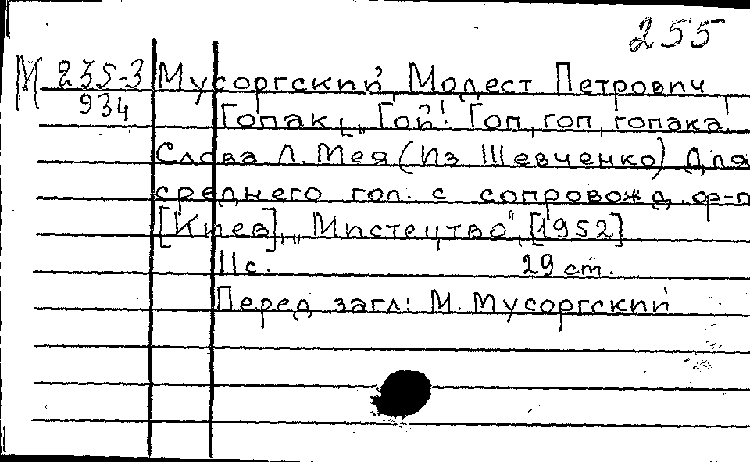 255
М 235-3 Мусоргский, Модест Петрович
934 Гопак „Гой! Гоп, гоп гопака
Слова Л. Мея (Из Шевченко) Для
среднего гол. с сопровожд. ф-п
[Киев], „Мистецтво", [1952]
11с. 29 cm.
Перед загл: М. Мусоргский